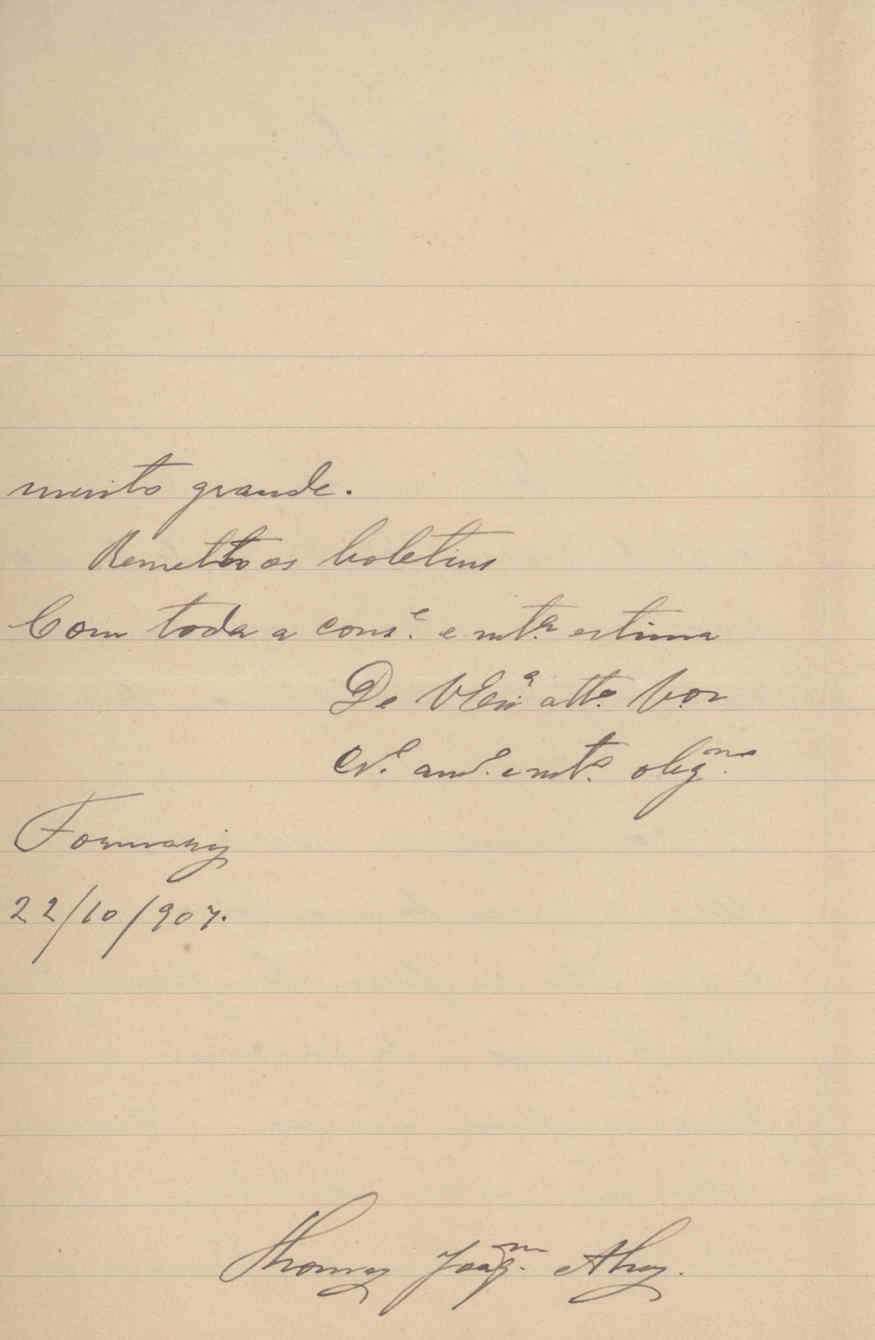 merito grande.
Remetto os boletins
Com toda a cons.e e mt.a estima
De V Ex.a att.o V.or
Cr.o am.o e mt.o obrig.mo
22/10/907.
Thomaz Joaq.m